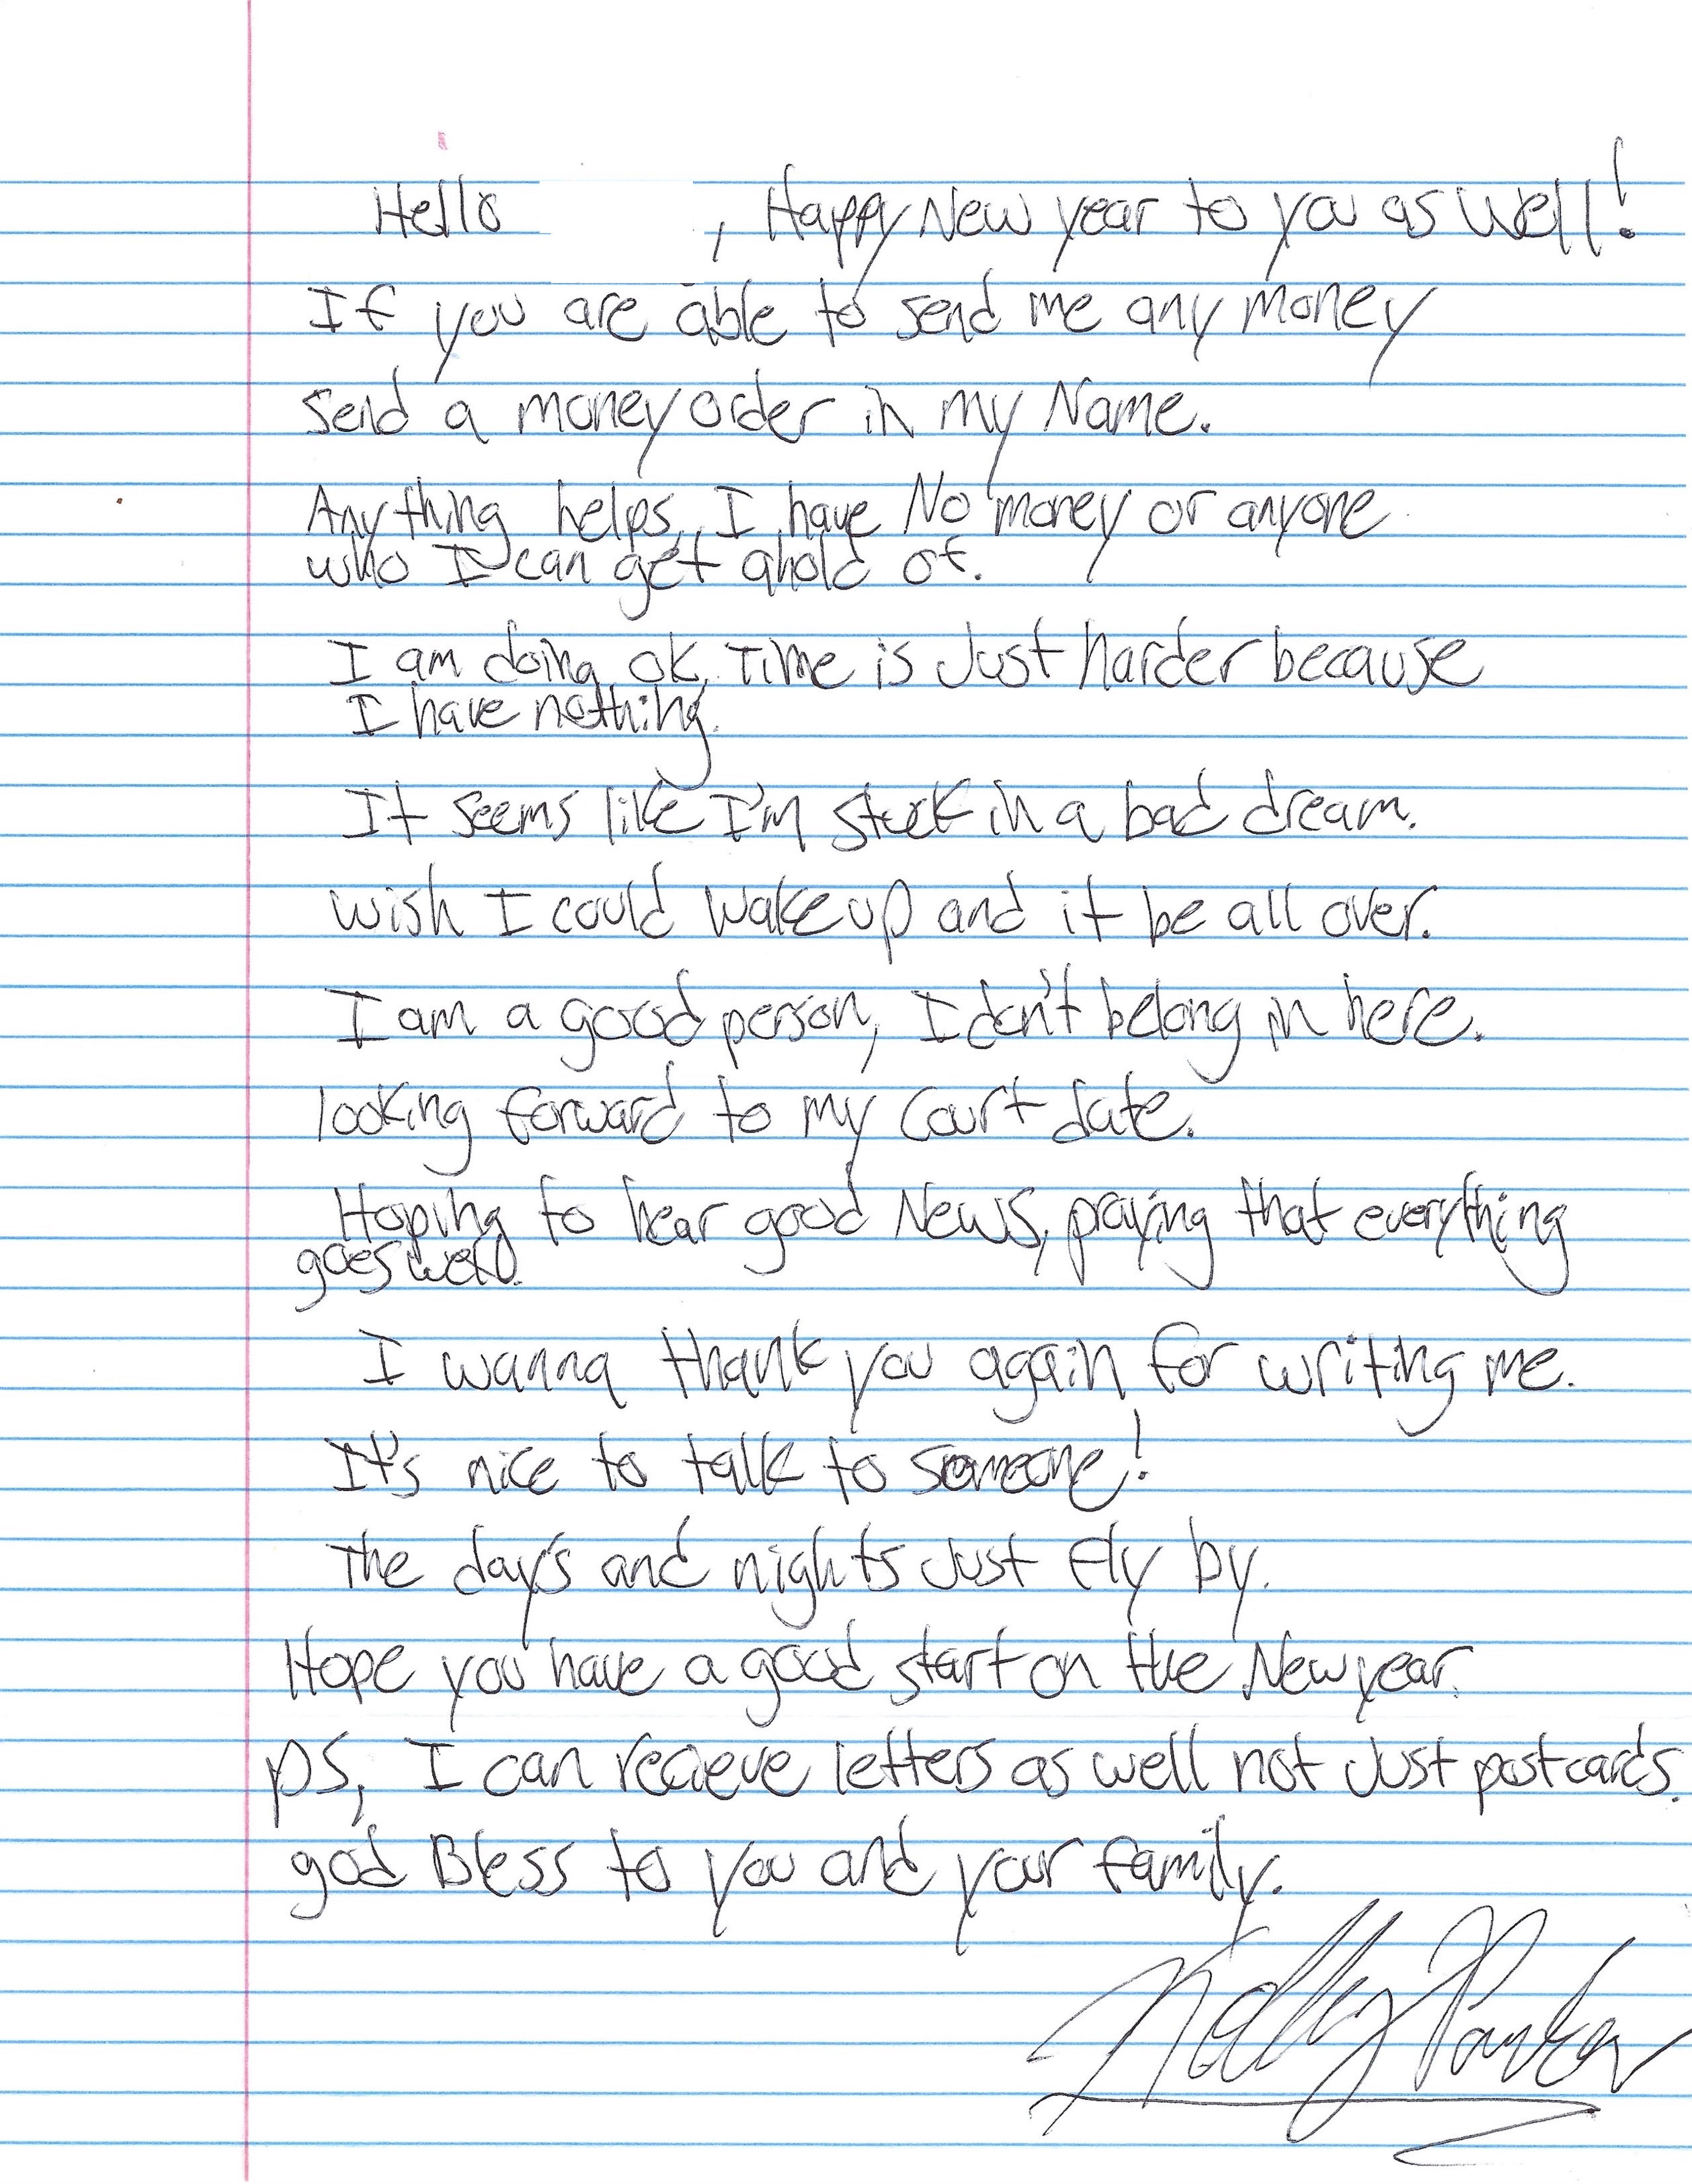 Hello , Happy New year to you as well!
If you are able to send me any money
send a money order in my Name.
Anything helps, I have No money or anyone
who I can get ahold of.
I am doing ok, Time is Just harder because
I have nothing.
It seems like I'm stuck in a bad dream.
wish I could wake up and it be all over.
I am a good person, I don't belong in here.
looking forward to my Court date.
Hoping to hear good News, praying that everything
goes well.
I wanna thank you again for writing me.
It's nice to talk to someone!
The day's and nights Just Fly by.
Hope you have a good start on the New year.
ps, I can recieve letters as well not Just postcards.
god Bless to you and your family.
Kelly Parker